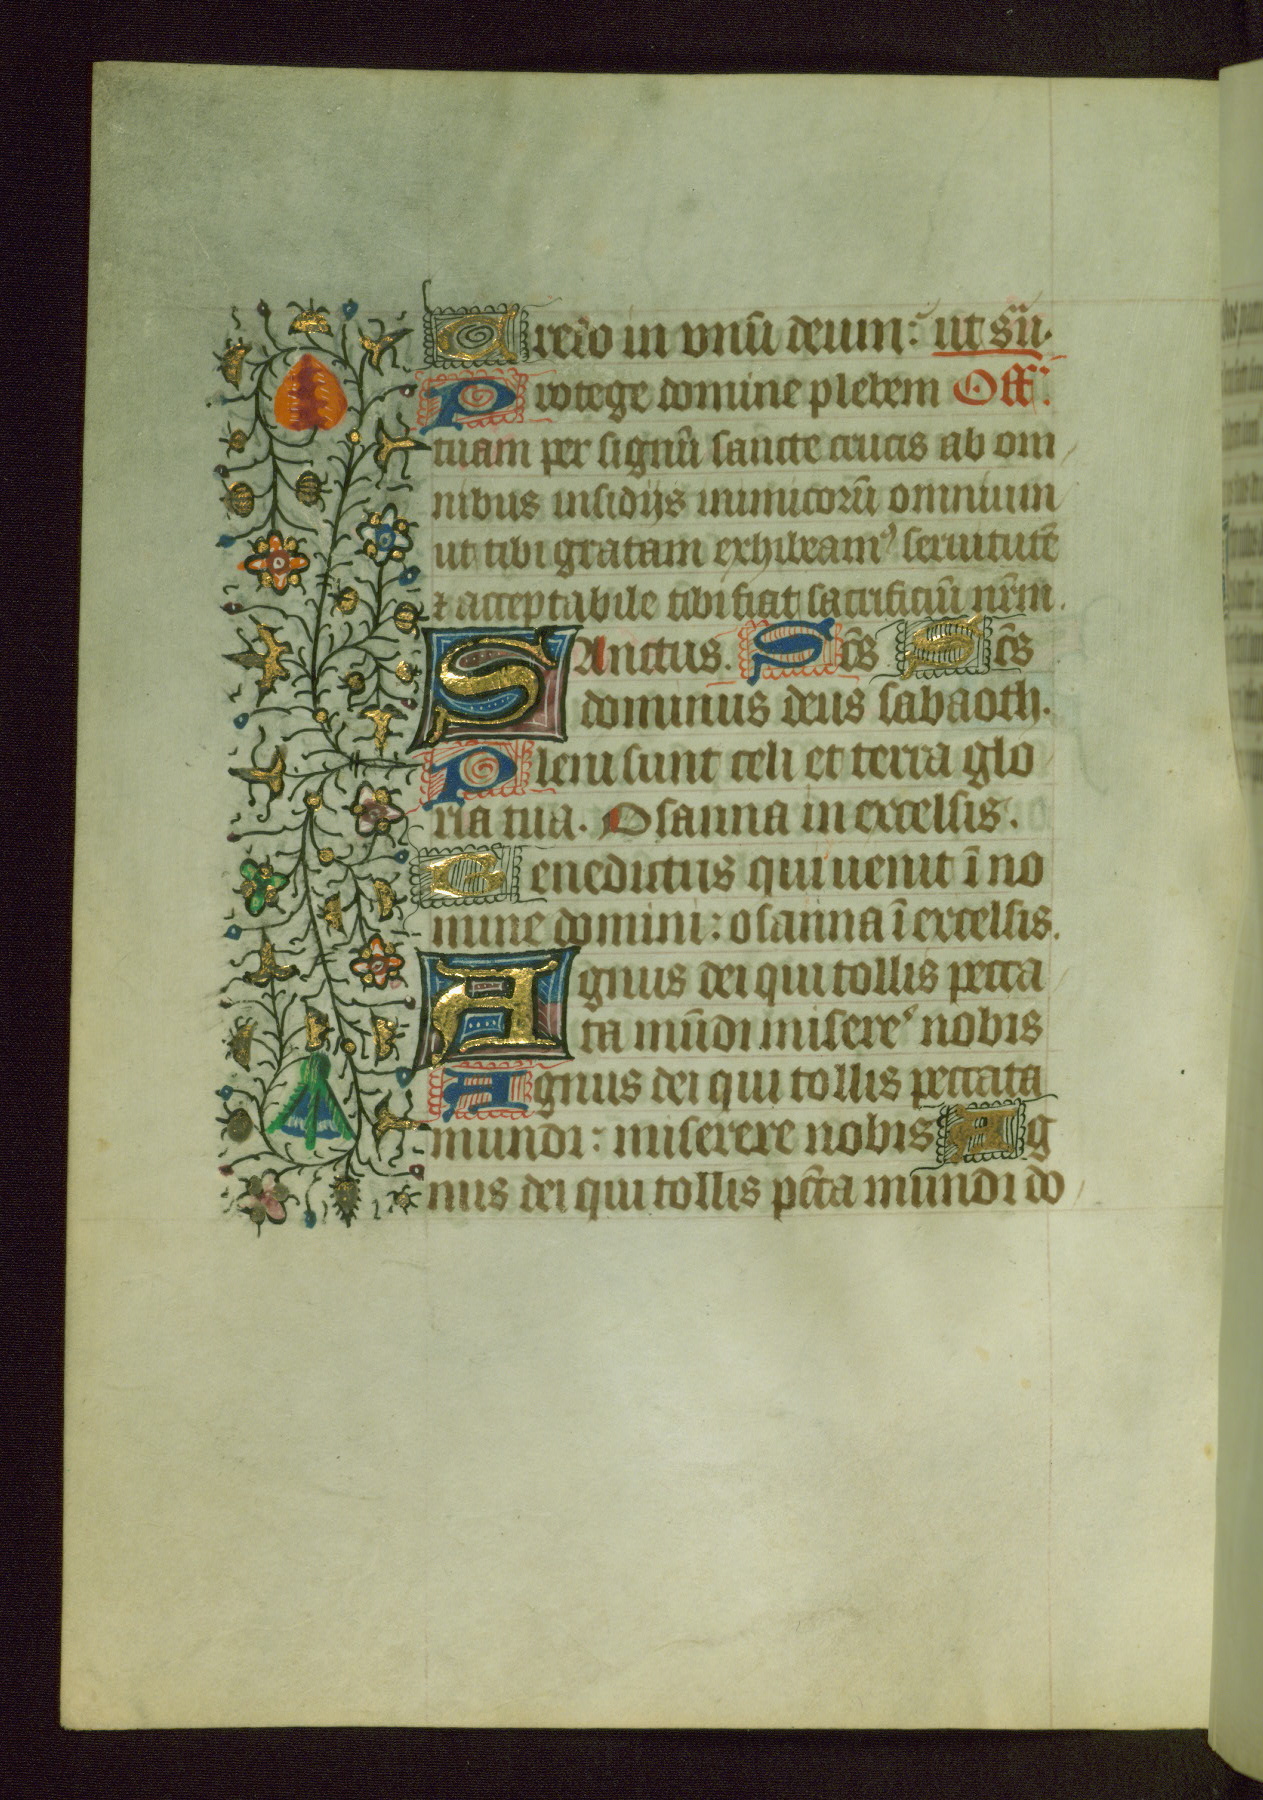 Credo in vnū deum: ut sū.
Protege domine plebem Off.
tuam per signū sancte crucis ab om
nibus insidijs inimicorū omnium
ut tibi gratam exhibeam⁹ seruitutē
⁊ acceptabile tibi fiat sacrificiū nr̄m.
SAnctus. Sc̄s Sc̄s
dominus deus sabaoth.
Pleni sunt celi et terra glo
ria tua. Osanna in excelsis.
Benedictus qui uenit ī no
mine domini: osanna ī excelsis.
Agnus dei qui tollis pecca
ta mūdi misere⁹ nobis
Agnus dei qui tollis peccata
mundi: miserere nobis Ag
nus dei qui tollis pc̄ta mundi do